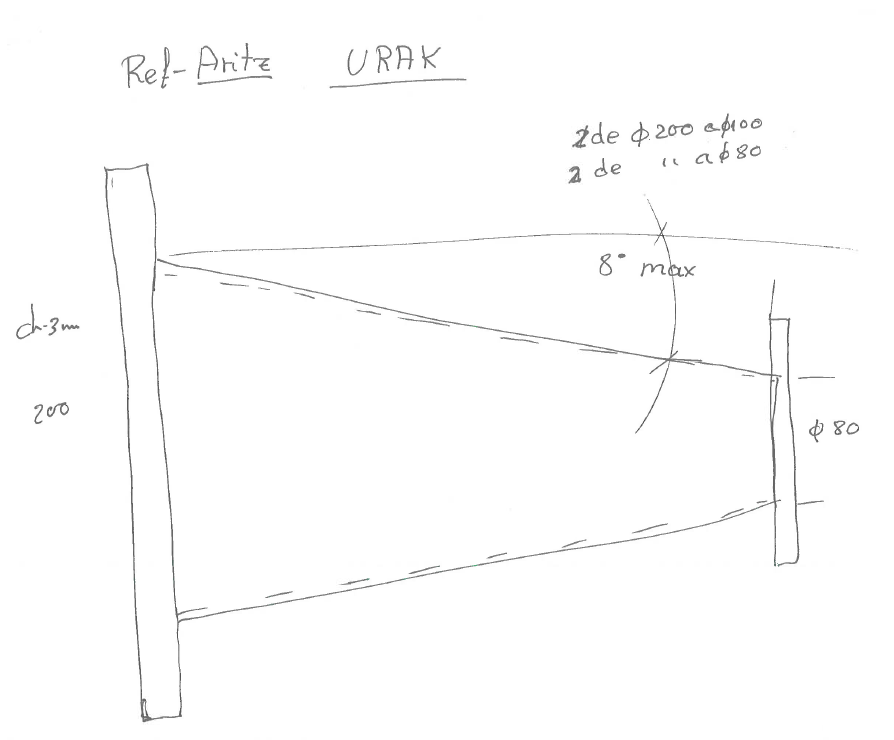 Ref-Aritz URAK
2 de ϕ 200 a ϕ100
2 de " a ϕ 80
8° max
ch-3mm
200
ϕ 80